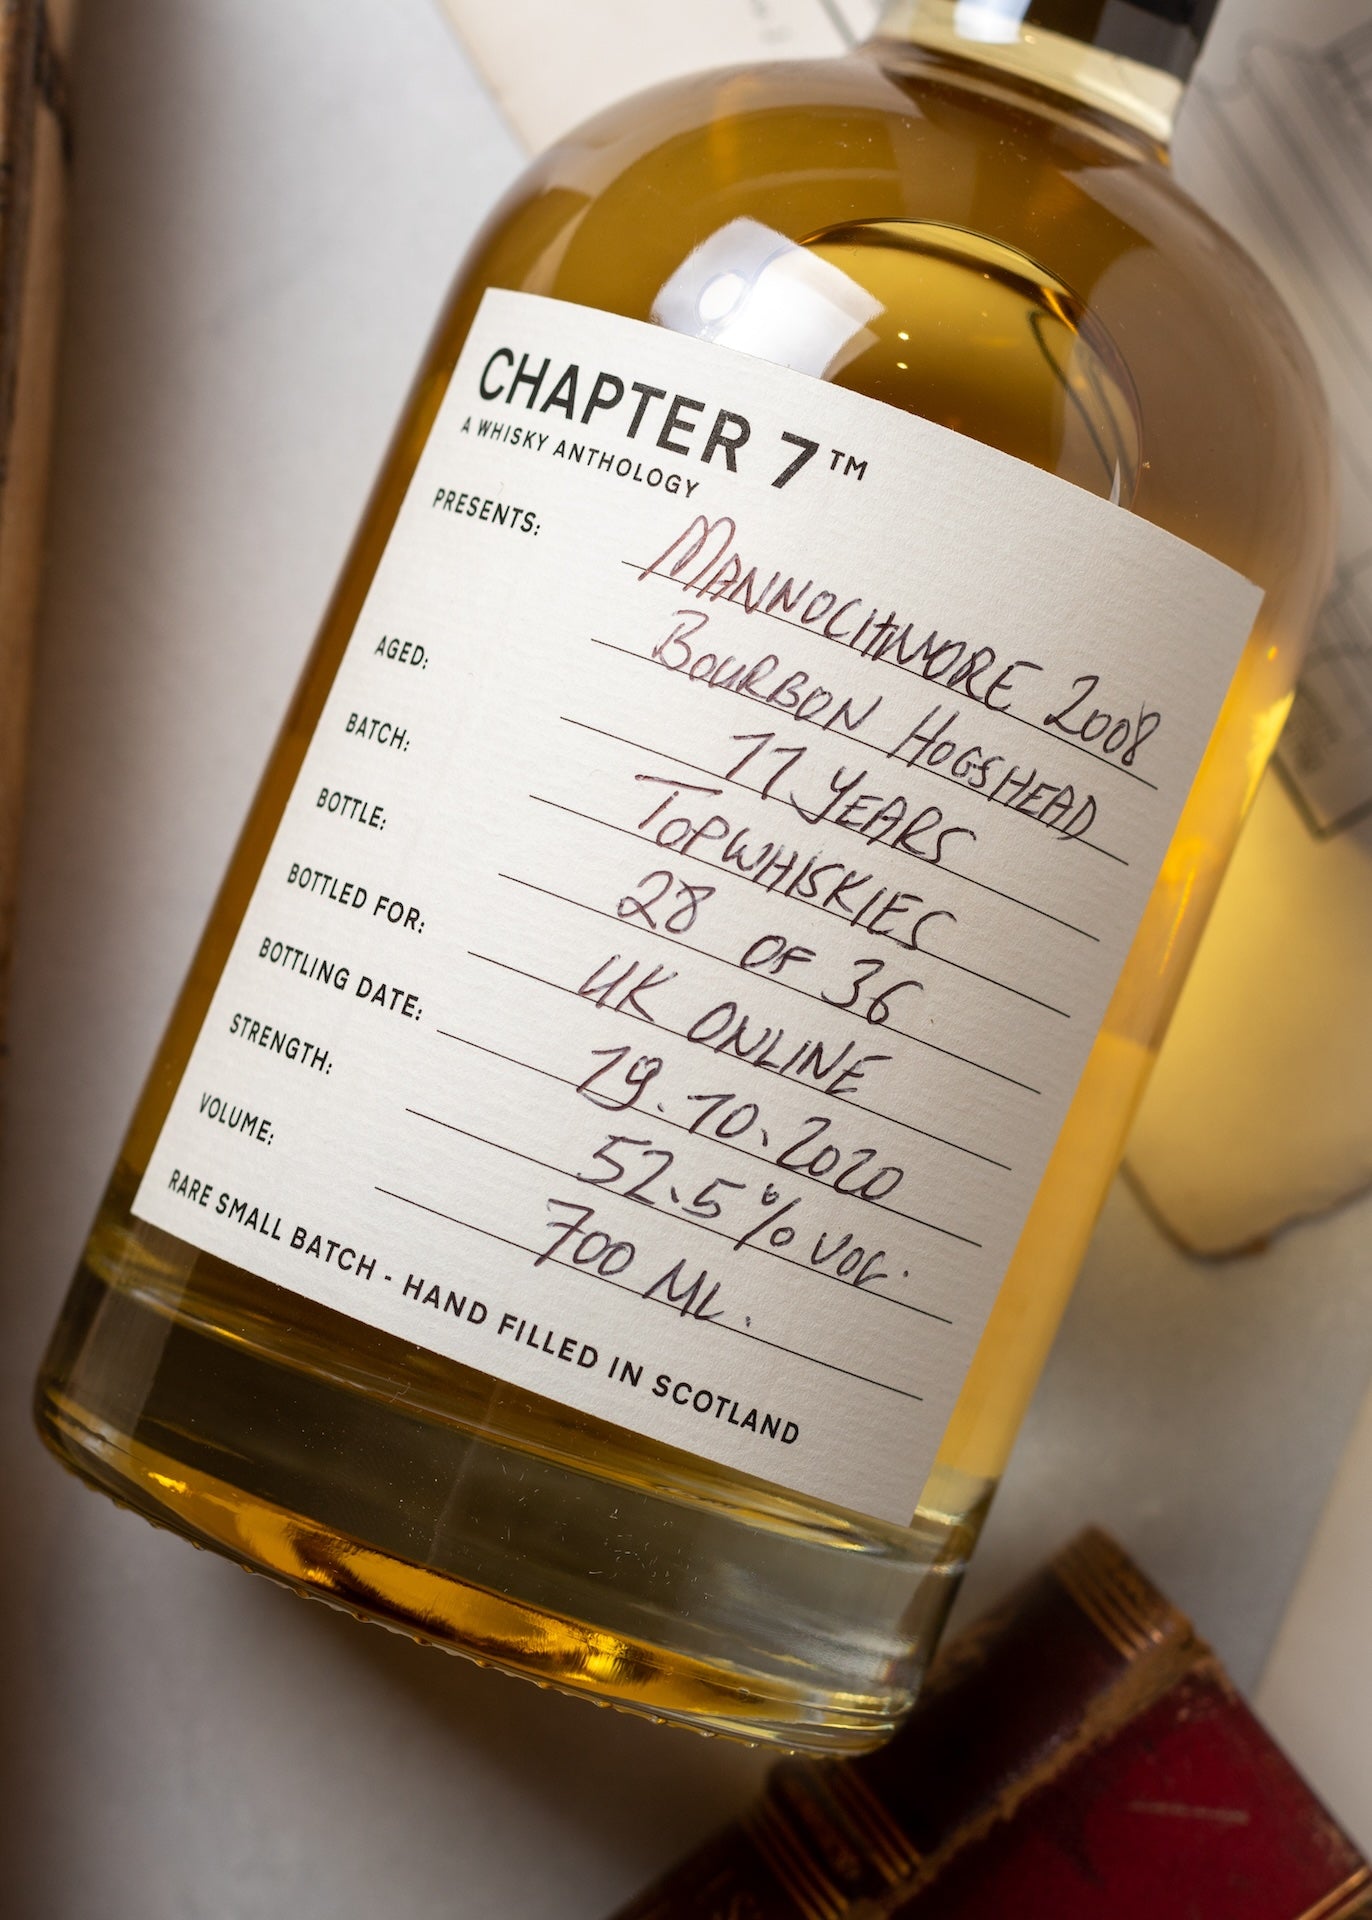 CHAPTER 7™
A WHISKY ANTHOLOGY
PRESENTS: MANNOCHMORE 2008
BOURBON HOGSHEAD
AGED: 11 YEARS
BATCH: TOPWHISKIES
BOTTLE: 28 OF 36
BOTTLED FOR: UK ONLINE
BOTTLING DATE: 19.10.2020
STRENGTH: 52.5% VOL.
VOLUME: 700 ML.
RARE SMALL BATCH - HAND FILLED IN SCOTLAND